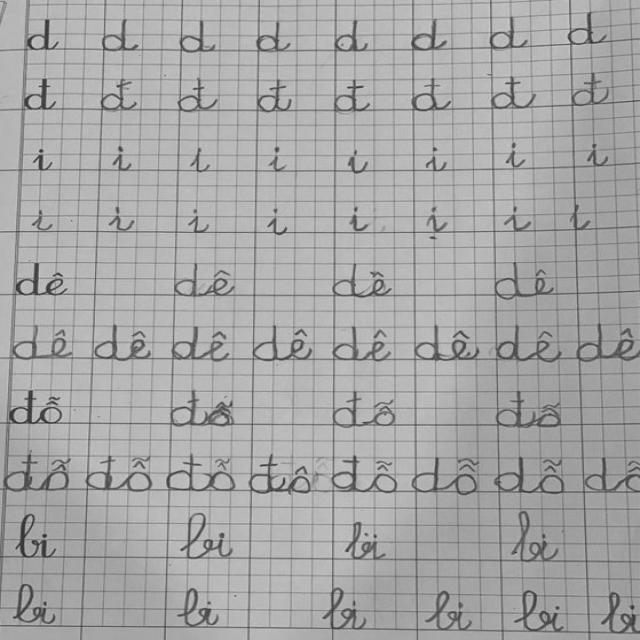 d d d d d d d d
đ đ đ đ đ đ đ đ
i i i i i i i i
i i i i i i i i
dê dê dê dê
dê dê dê dê dê dê dê dê
dỗ đỗ dỗ đỗ
đỗ đỗ đỗ đô đỗ dỗ dỗ
bi bi bi bi
bi bi bi bi bi bi